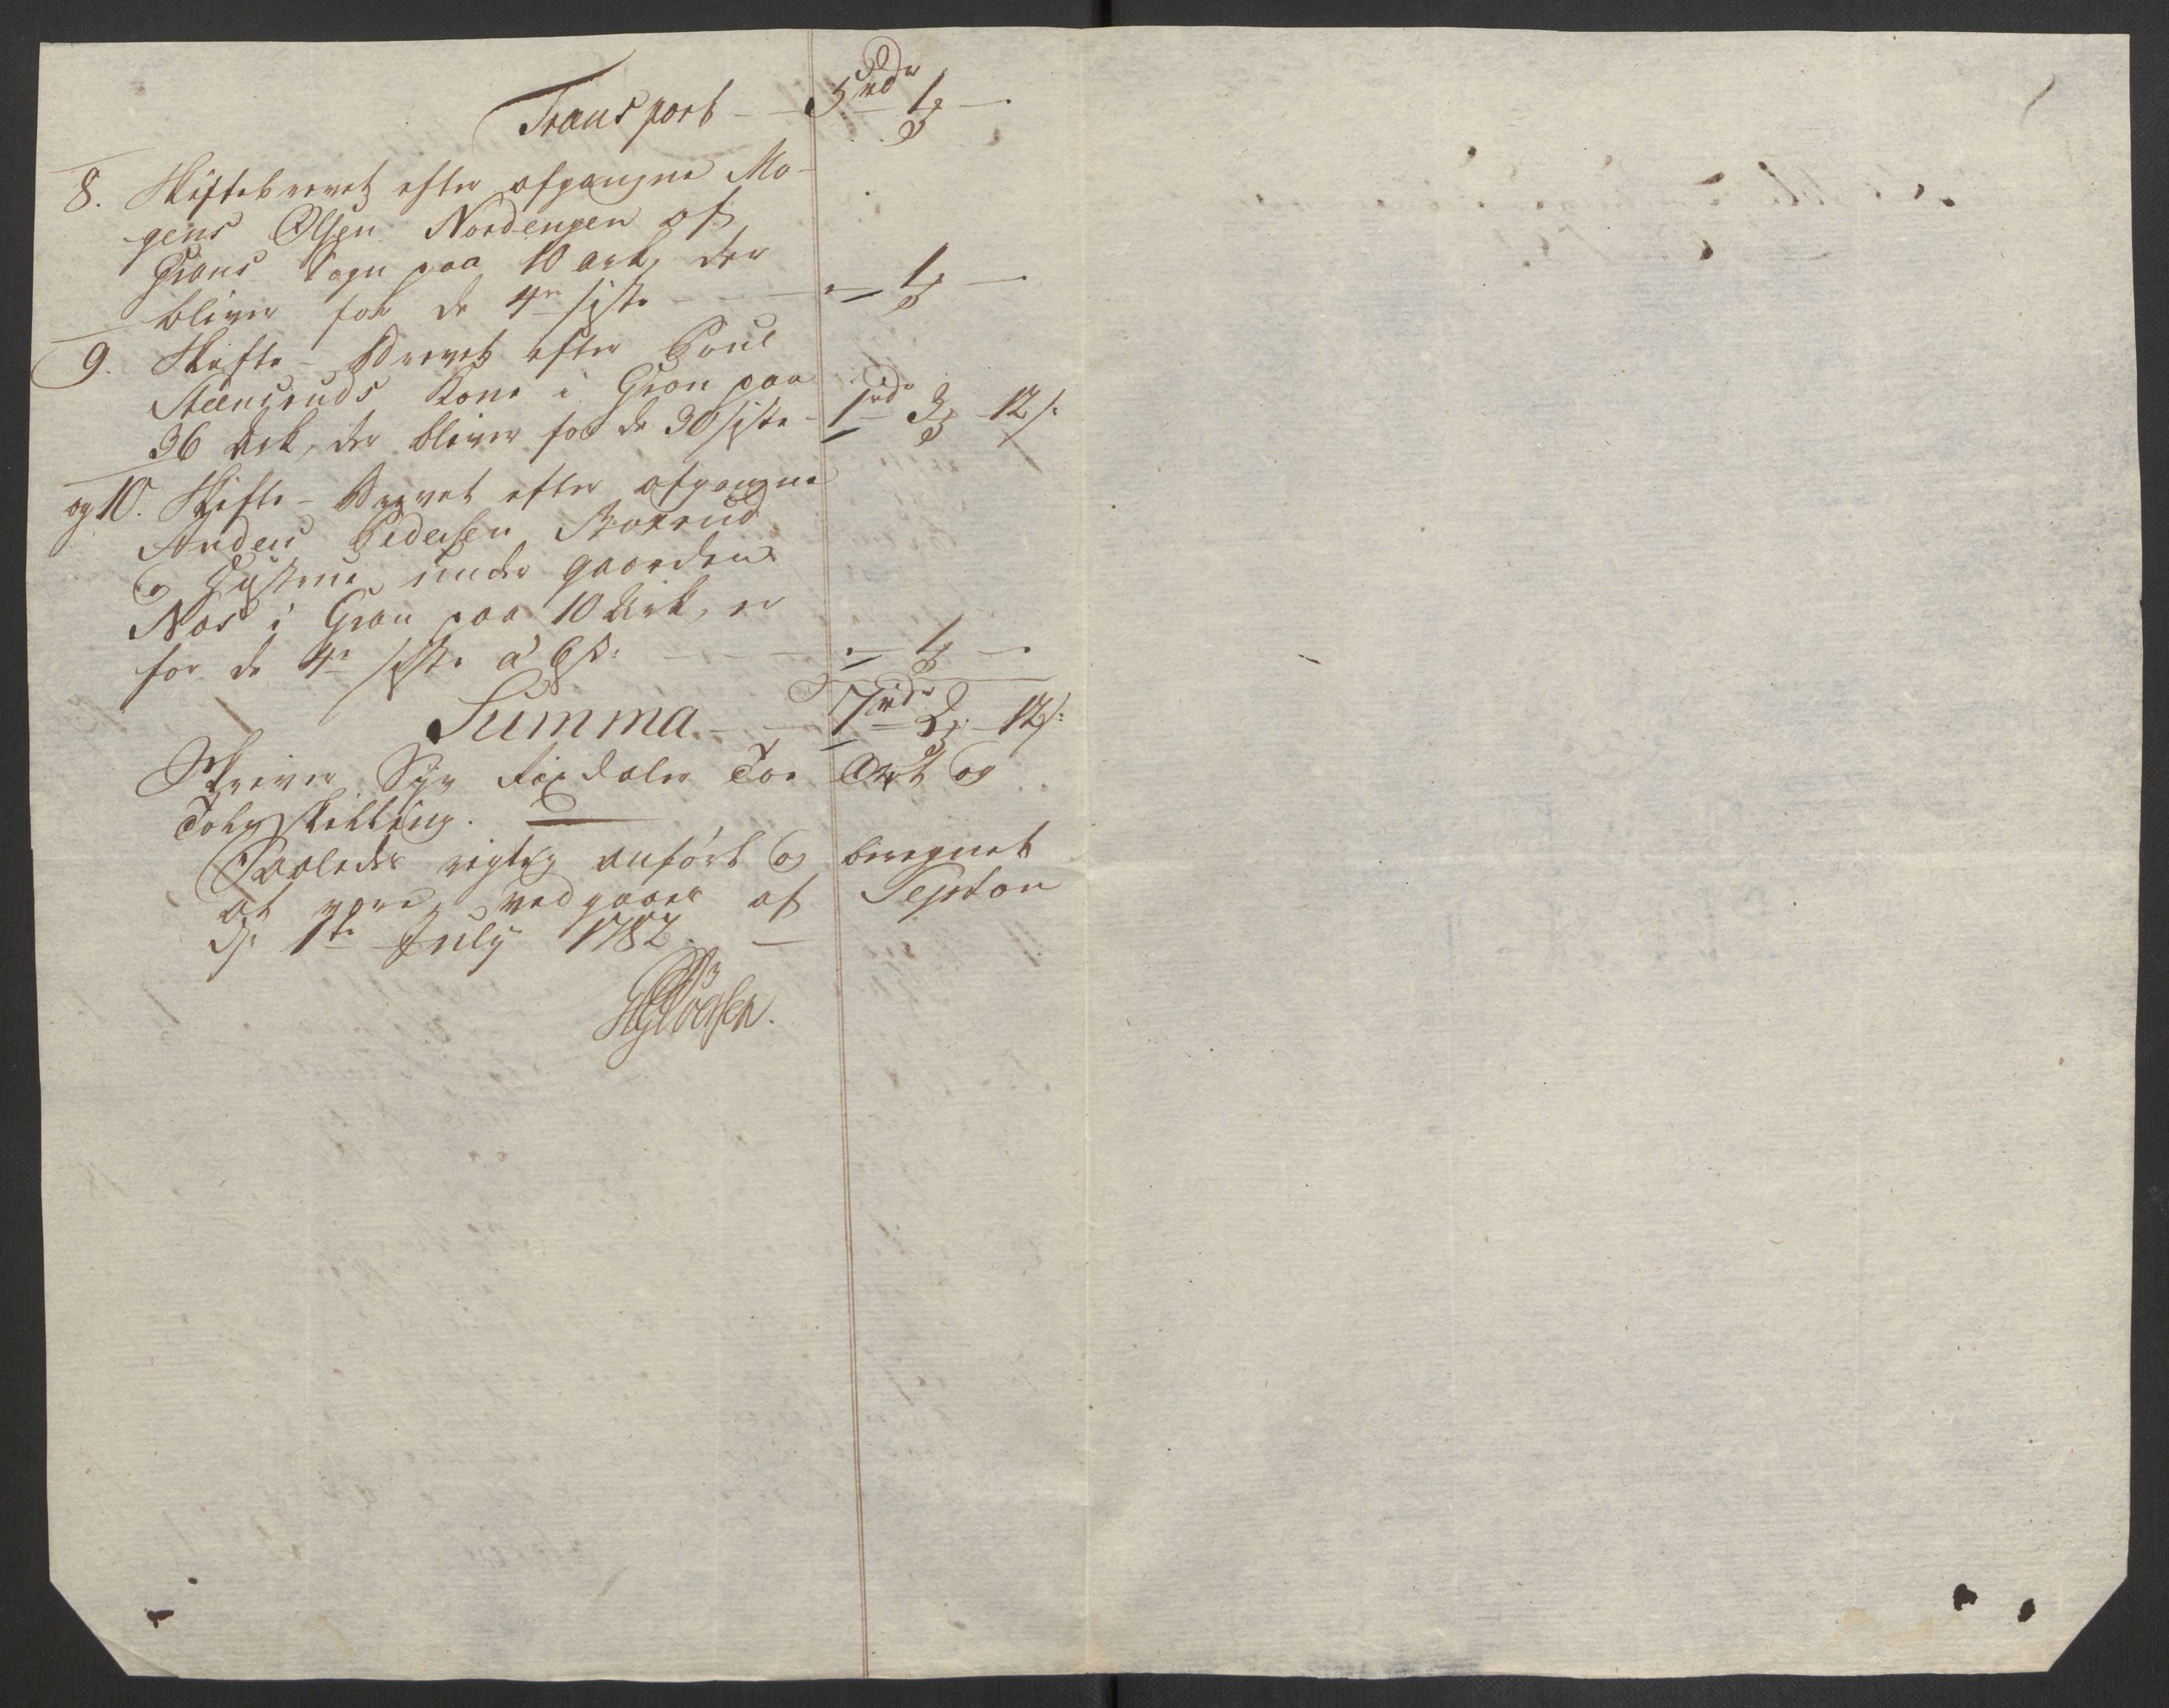 Transport - - 5 rdr 1 ȝ —
8. Skiftebrevet efter afgangne Mo-
gens Olsen Nordengen af
Grans Sogn paa 10 Ark, der
bliver for de 4re sidste - - - 1 ȝ —
9. Skifte-Brevet efter Poul
Steensruds Kone i Gran paa
36 Ark, der bliver for de 30 sidste - 1 rdr 3 ȝ 12 s:
og 10. Skifte-Brevet efter afgangne
Anders Pedersen
og Hustrue under gaarden
Nos i Gran paa 10 Ark, er
for de 4re sidste á 6 s: - - - 1 ȝ —
Summa - - 7 rdr 2 ȝ 12 s:
Skriver Syv Rixdaler Toe Ort og
Tolv skilling.
Saaledes rigtig anført og beregnet
at være, vedgaaer af Septon
D: 1te July 1782. —